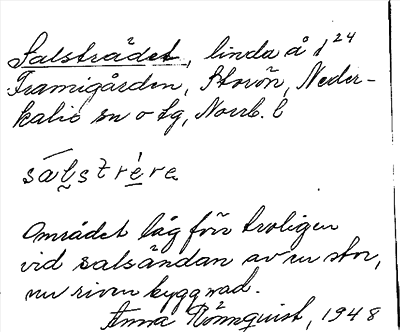 Salsträdet, linda å 1²⁴
Framigården, Storön, Neder-
kalix sn o tg, Norrb. l
sal̬stré̱re
Området låg förr troligen
vid salsändan av en stor,
nu riven byggnad.
Anna Rönnquist, 1948